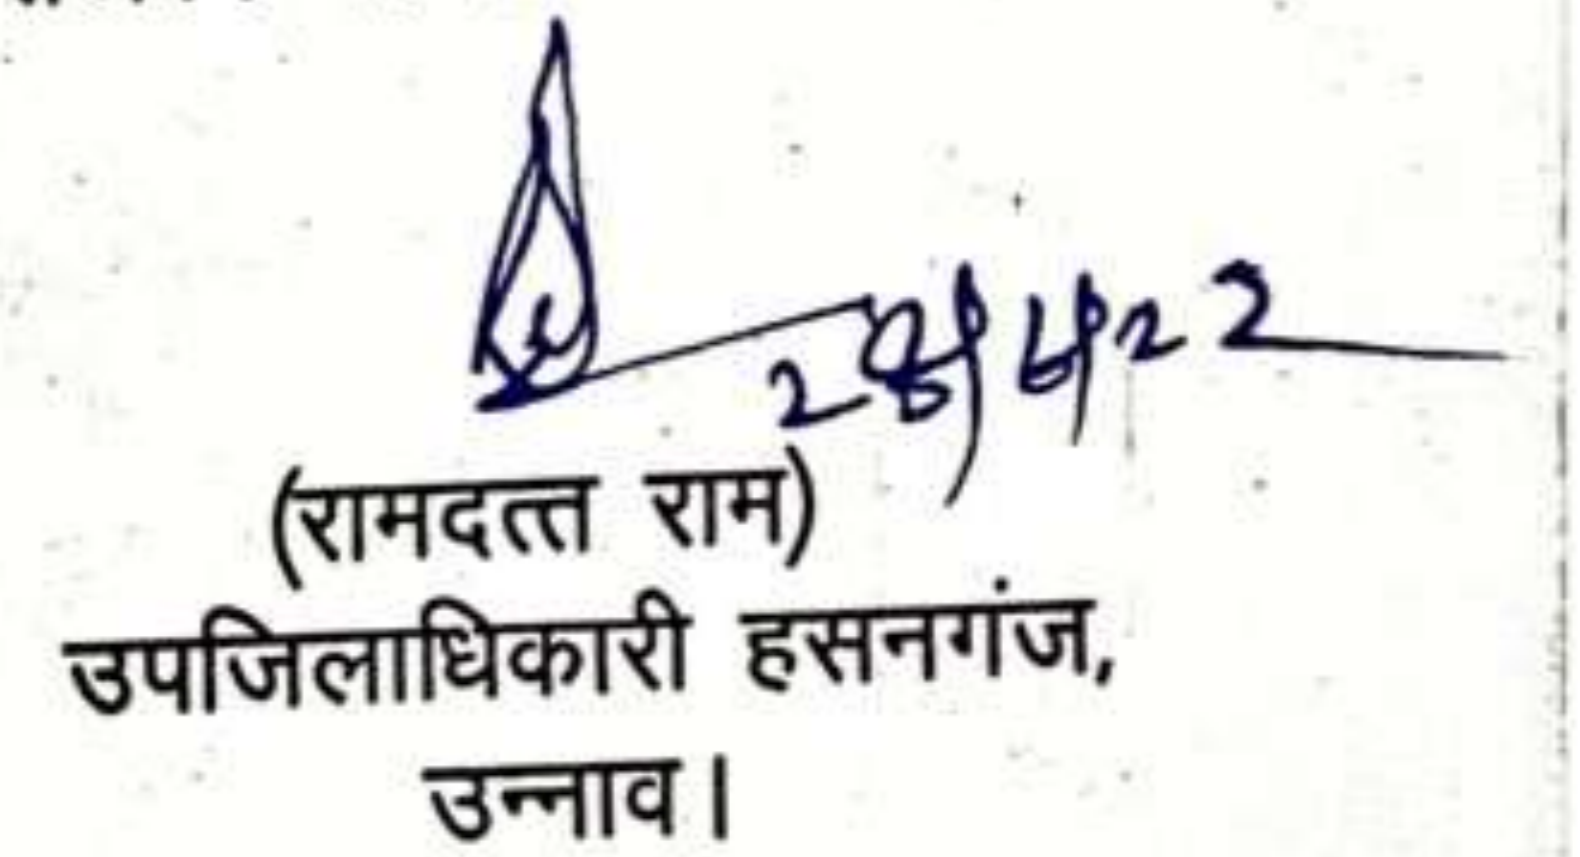 (रामदत्त राम)
उपजिलाधिकारी हसनगंज,
उन्नाव।